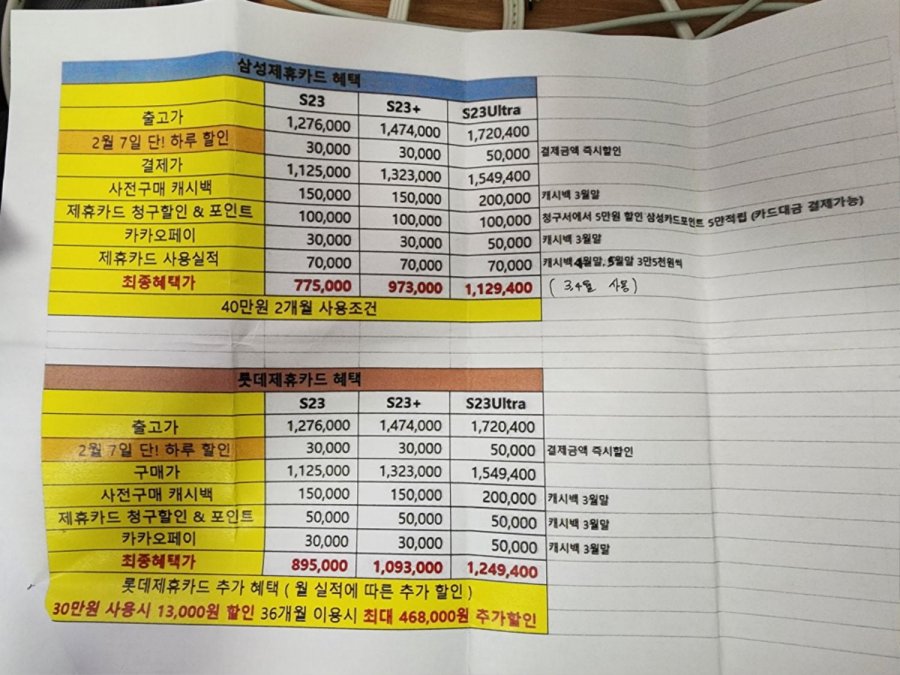 삼성제휴카드 혜택
S23 S23+ S23Ultra
출고가 1,276,000 1,474,000 1,720,400
2월 7일 단! 하루 할인 30,000 30,000 50,000 결제금액 즉시할인
결제가 1,125,000 1,323,000 1,549,400
사전구매 캐시백 150,000 150,000 200,000 캐시백 3월말
제휴카드 청구할인 & 포인트 100,000 100,000 100,000 청구서에서 5만원 할인 삼성카드포인트 5만적립 (카드대금 결제가능)
카카오페이 30,000 30,000 50,000 캐시백 3월말
제휴카드 사용실적 70,000 70,000 70,000 캐시백4월말, 5월말 3만5천원씩
최종혜택가 775,000 973,000 1,129,400 ( 3,4월 사용 )
40만원 2개월 사용조건
롯데제휴카드 혜택
S23 S23+ S23Ultra
출고가 1,276,000 1,474,000 1,720,400
2월 7일 단! 하루 할인 30,000 30,000 50,000 결제금액 즉시할인
구매가 1,125,000 1,323,000 1,549,400
사전구매 캐시백 150,000 150,000 200,000 캐시백 3월말
제휴카드 청구할인 & 포인트 50,000 50,000 50,000 캐시백 3월말
카카오페이 30,000 30,000 50,000 캐시백 3월말
최종혜택가 895,000 1,093,000 1,249,400
롯데제휴카드 추가 혜택 ( 월 실적에 따른 추가 할인 )
30만원 사용시 13,000원 할인 36개월 이용시 최대 468,000원 추가할인